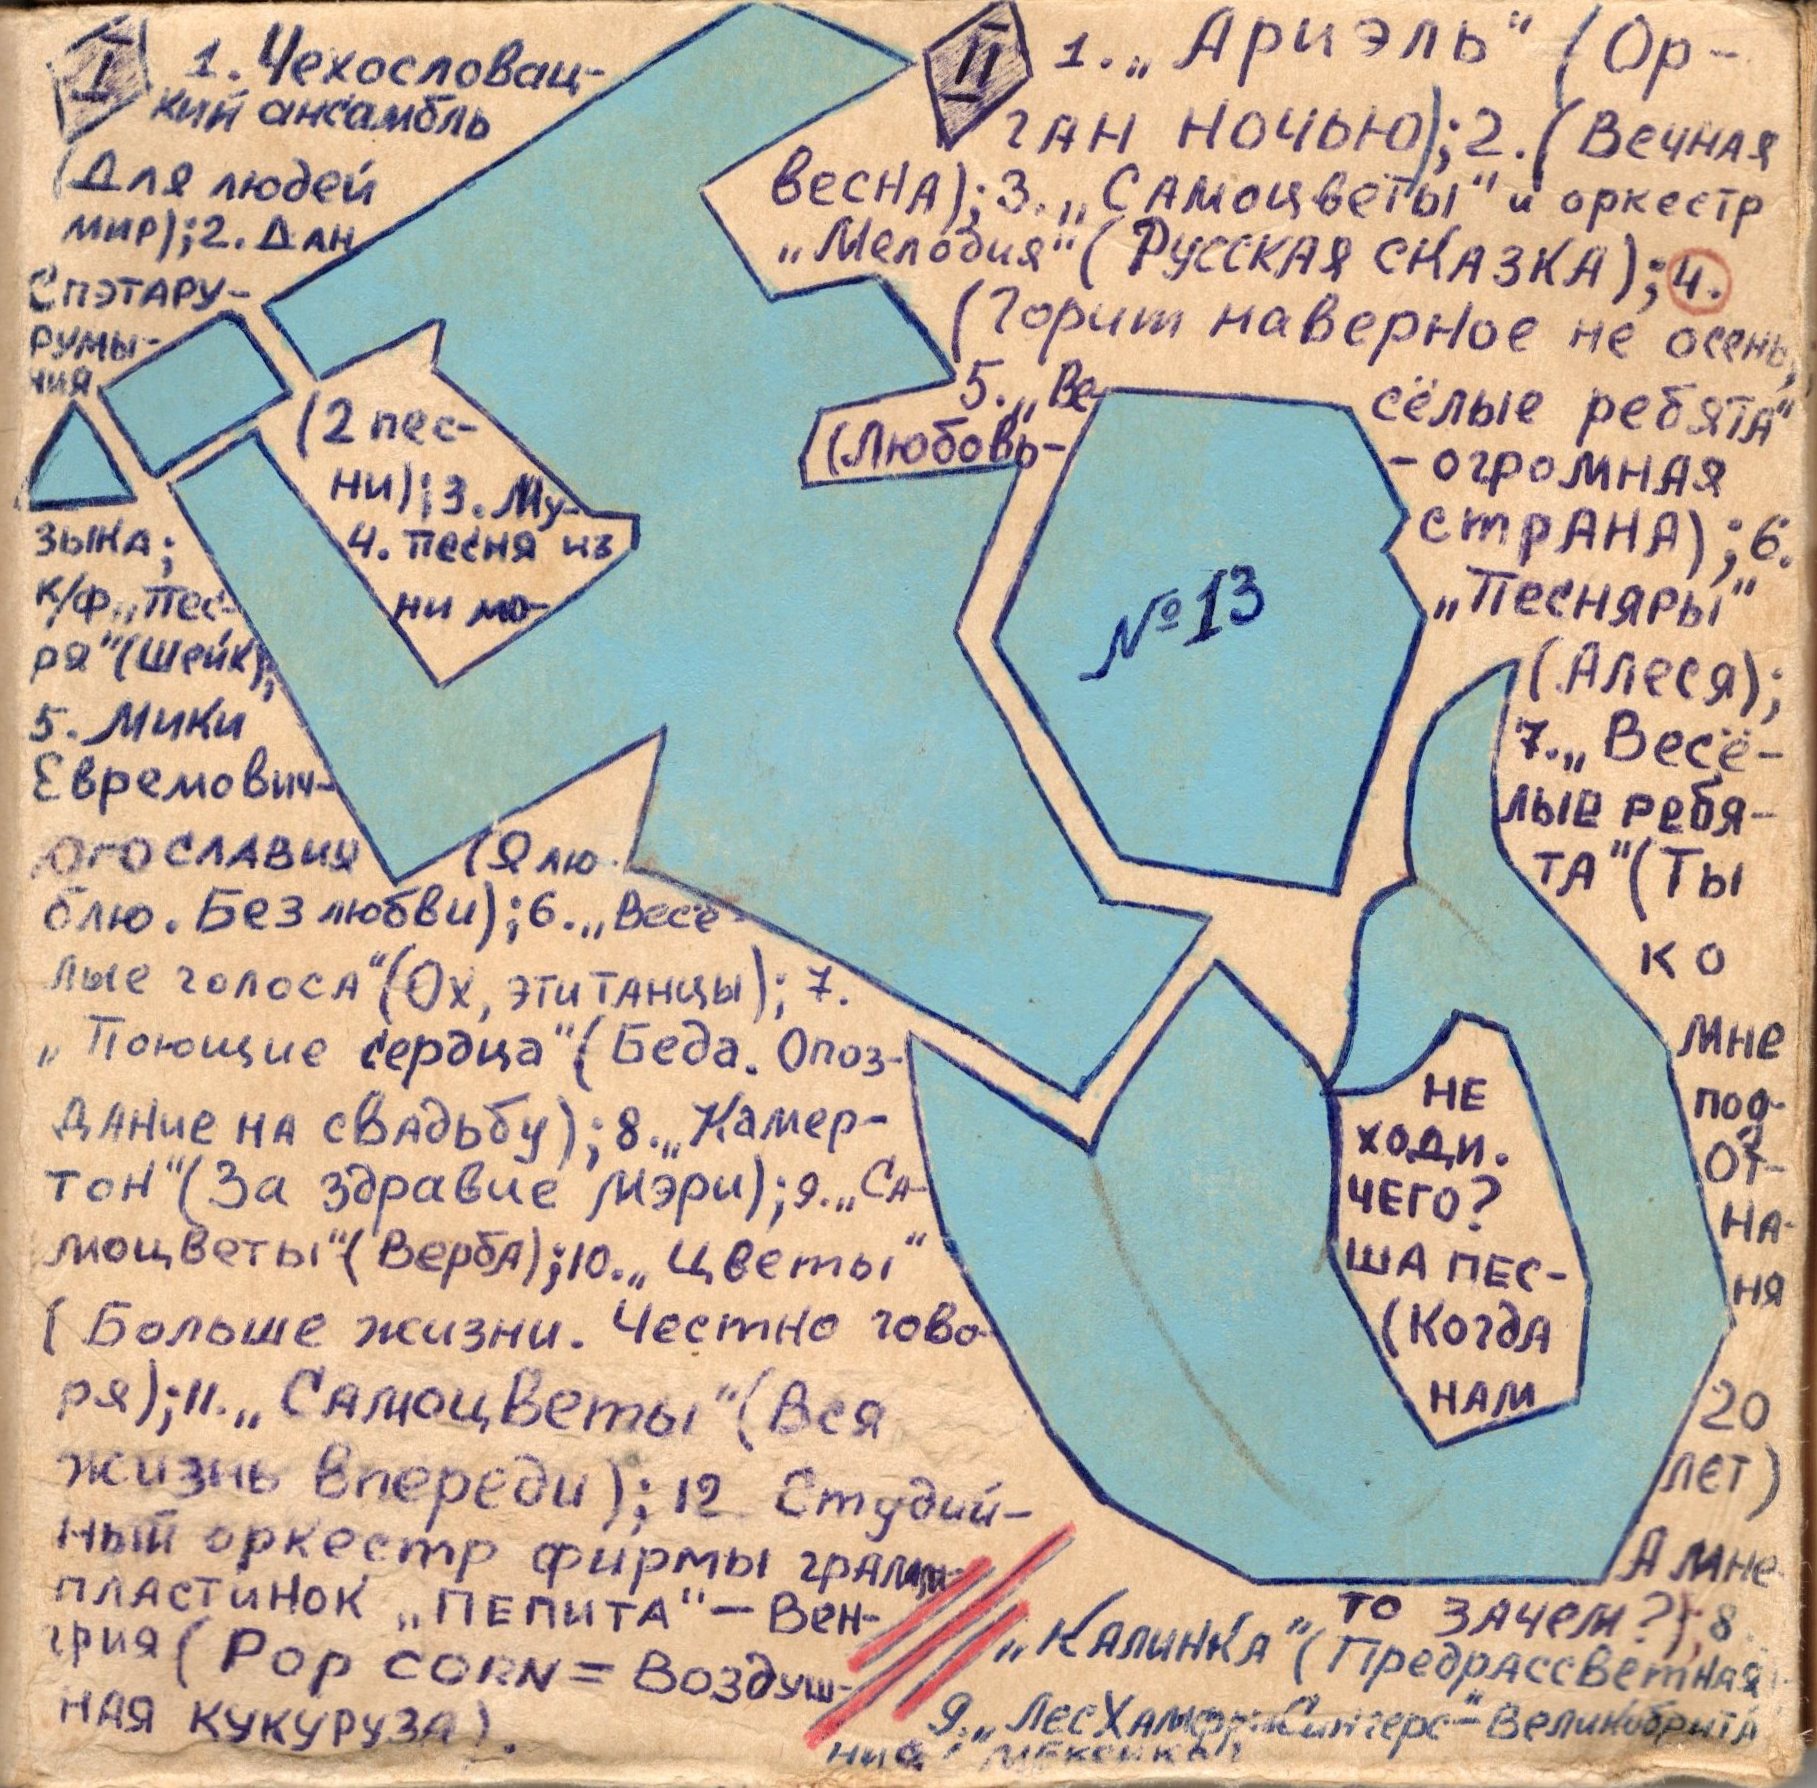 I 1. Чехословац-
кий ансамбль
(Для людей
мир); 2. Дан
Спэтару-
румы-
ния
(2 пес-
ни); 3. Му-
зыка;
4. песня из
к/ф „Пес-
ни мо-
ря" (Шейк);
5. Мики
Евремович-
Югославия (Я лю-
блю. Без любви); 6. „Весё-
лые голоса" (Ох, эти танцы); 7.
„Поющие сердца" (Беда. Опоз-
дание на свадьбу); 8. „Камер-
тон" (За здравие Мэри); 9. „Са-
моцветы" (Верба); 10. „Цветы"
(Больше жизни. Честно гово-
ря); 11. „Самоцветы" (Вся
жизнь впереди); 12 Студий-
ный оркестр фирмы грам-
пластинок „ПЕПИТА" – Вен-
грия (Pop corn = Воздуш-
ная кукуруза).
II 1. „Ариэль" (Ор-
ган ночью); 2. (Вечная
весна); 3. „Самоцветы" и оркестр
„Мелодия" (Русская сказка); 4.
(Горит наверное не осень);
5. „Ве- сёлые ребята"
(Любовь- -огромная
страна); 6.
„Песняры"
(Алеся);
7. „Весё-
лые ребя-
та" (Ты
ко
мне
НЕ под-
ХОДИ. От-
ЧЕГО? НА-
ША ПЕС- НЯ
(Когда
НАМ 20
лет)
А мне-
то зачем?); 8.
„Калинка" (Предрассветная)
9. „Лес Хамфри Сингерс" – Великобрита-
ния („Мексико")
№13